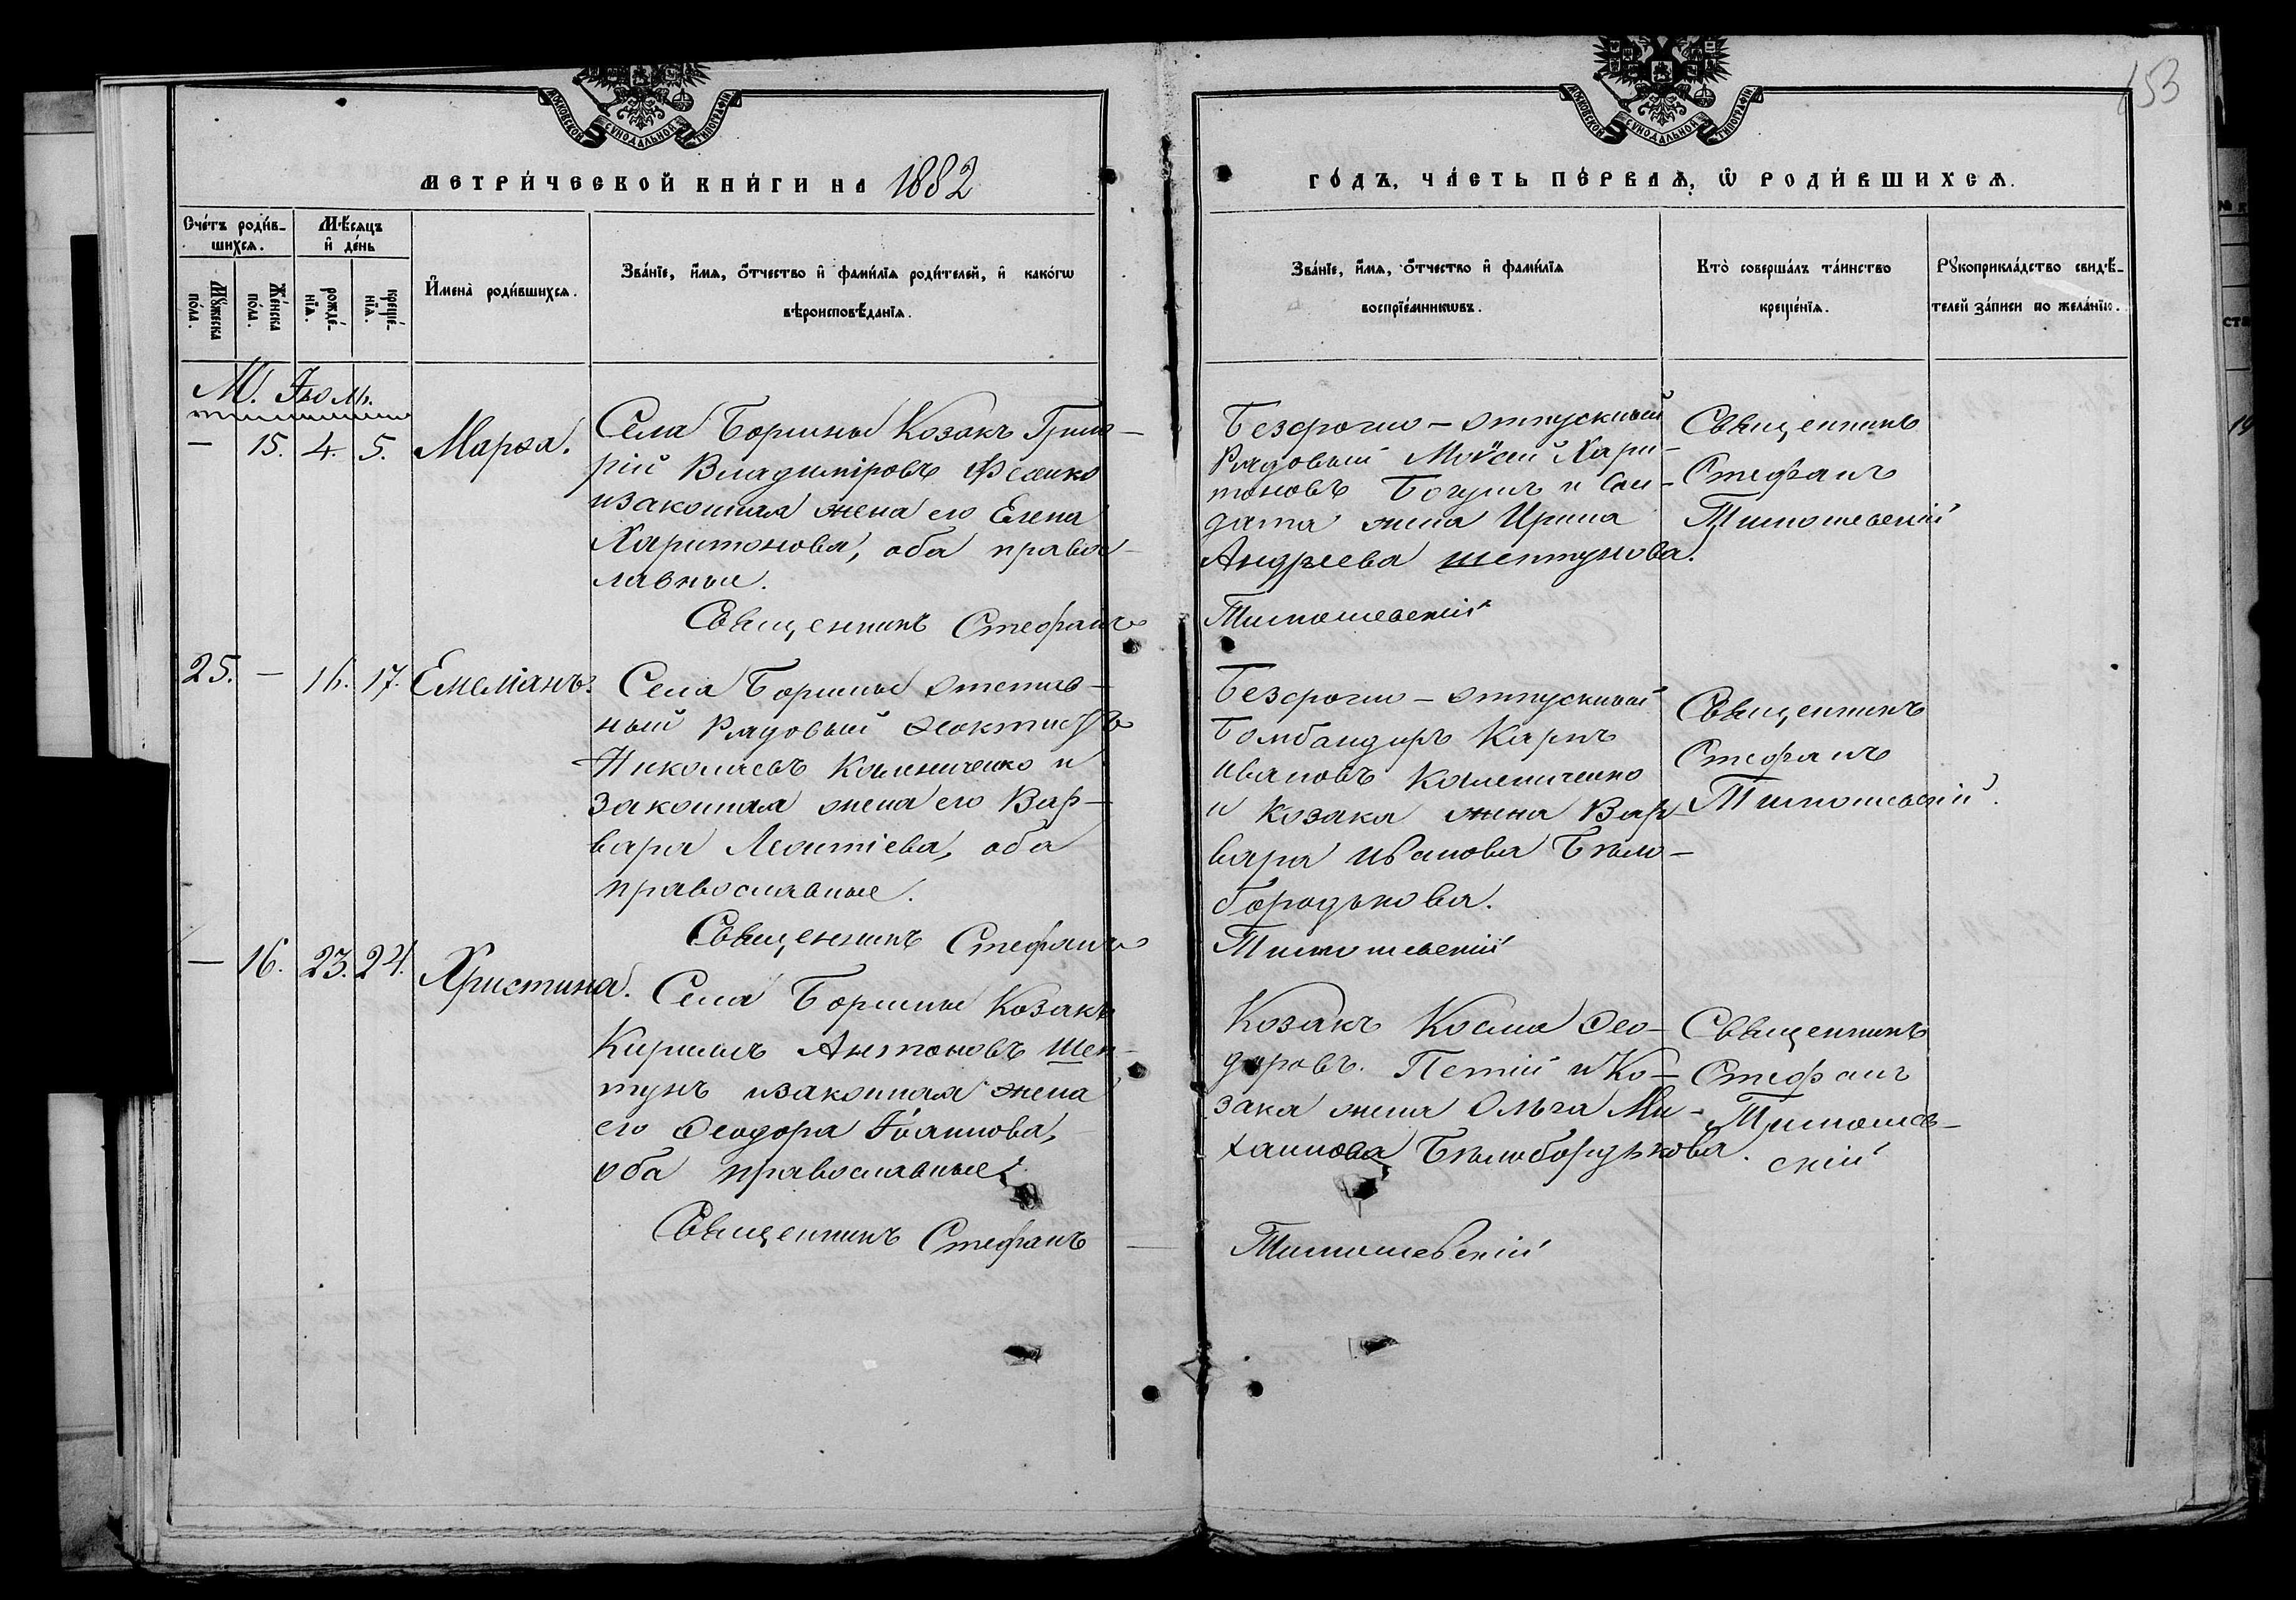 153
МОСКОВСКОЙ СѴНОДАЛЬНОЙ ТИПОГРАФІИ
МОСКОВСКОЙ СѴНОДАЛЬНОЙ ТИПОГРАФІИ
МЕТРИ́ЧЕСКОЙ КНИ́ГИ НА 1882
ГО́ДЪ, ЧА́СТЬ ПЕ́РВАѦ, Ѡ҆ РОДИ́ВШИХСѦ.
Сче́тъ роди́в-
шихсѧ.
Мѣ́сѧцъ
и҆ де́нь
Мꙋ́жеска
по́ла.
Же́нска
по́ла.
рожде́-
нїѧ.
креще́-
нїѧ.
И҆мена̀ роди́вшихсѧ.
Зва́нїе, и҆́мѧ, ѻ҆́тчество и҆ фами́лїѧ роди́телей, и҆ какóгѡ
вѣроисповѣ́данїѧ.
Зва́нїе, и҆́мѧ, ѻ҆́тчество и҆ фами́лїѧ
воспрїе́мникѡвъ.
Кто̀ соверша́лъ та́инство
креще́нїѧ.
Рꙋкоприкла́дство свидѣ́-
телей за́писи по жела́нїю.
М. Іюль.
— 15. 4. 5. Марѳа.
Села Боршны Козакъ Григо-
рій Владиміровъ Фесенко
и законная жена его Елена
Харитонова, оба правос-
лавные.
Священникъ Стефанъ
Безсрочно-отпускный
Рядовый Моѵсей Хари-
тоновъ Богунъ и Сол-
дата жена Ирина
Андреева Шептунова.
Тимошевскій
Священникъ
Стефанъ
Тимошевскій
25. — 16. 17. Емеліанъ.
Села Боршны отстав-
ный Рядовый Ѳеоктистъ
Николаевъ Колениченко и
законная жена его Вар-
вара Леонтіева, оба
православные.
Священникъ Стефанъ
Безсрочно-отпускный
Бомбандиръ Карпъ
Ивановъ Колениченко
и Козака жена Вар-
вара Иванова Бѣло-
бородькова.
Тимошевскій
Священникъ
Стефанъ
Тимошевскій.
— 16. 23. 24. Христина.
Села Боршны Козакъ
Кириллъ Антоновъ Шеп-
тунъ и законная жена
его Ѳеодора Іоаннова,
оба православные.
Священникъ Стефанъ
Козакъ Косма Ѳео-
доровъ Петій и Ко-
зака жена Ольга Ми-
хаилова Бѣлобородькова.
Тимошевскій
Священникъ
Стефанъ
Тимошев-
скій